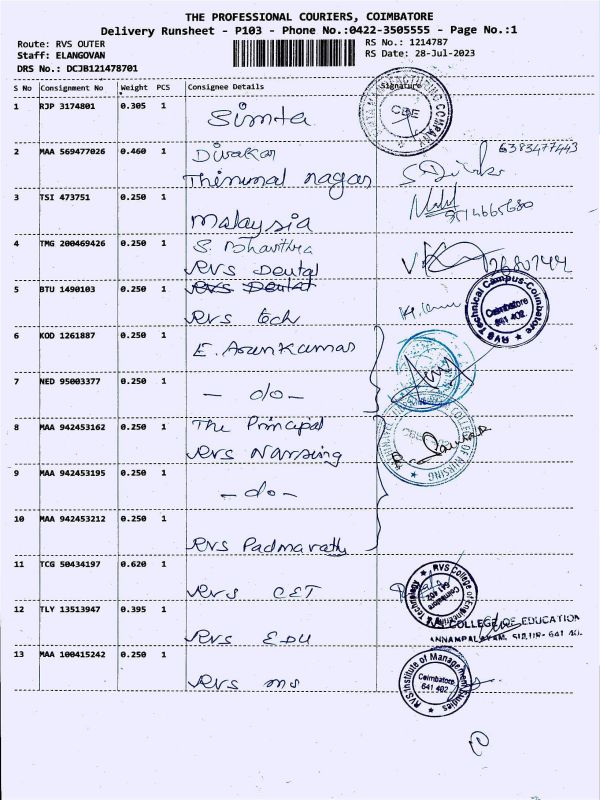 THE PROFESSIONAL COURIERS, COIMBATORE
Delivery Runsheet - P103 - Phone No.:0422-3505555 - Page No.:1
Route: RVS OUTER
Staff: ELANGOVAN
DRS No.: DCJB121478701
RS No.: 1214787
RS Date: 28-Jul-2023
S No Consignment No Weight PCS Consignee Details Signature
1 RJP 3174801 0.305 1 Simta
MANUFACTURING COMPANY CBE
2 MAA 569477026 0.460 1 Diwakar 6383477443
nagar
3 TSI 473751 0.250 1 Malaysia
4 TMG 200469426 0.250 1 S.
RVS Dental
5 BTU 1490103 0.250 1 RVS Dental
RVS tech
RVS Technical Campus-Coimbatore Coimbatore 641 402
6 KOD 1261887 0.250 1 E. Arunkumar
7 NED 95003377 0.250 1 - do -
8 MAA 942453162 0.250 1 The Principal
RVS Nursing
COLLEGE OF NURSING
9 MAA 942453195 0.250 1 - do -
10 MAA 942453212 0.250 1
RVS Padmavathy
11 TCG 50434197 0.620 1
RVS CET
RVS College of Engineering Technology Coimbatore 641 402
12 TLY 13513947 0.395 1
RVS EDU
COLLEGE OF EDUCATION
SULUR- 641 40
13 MAA 100415242 0.250 1
RVS ms
RVS Institute of Management Studies Coimbatore 641 402